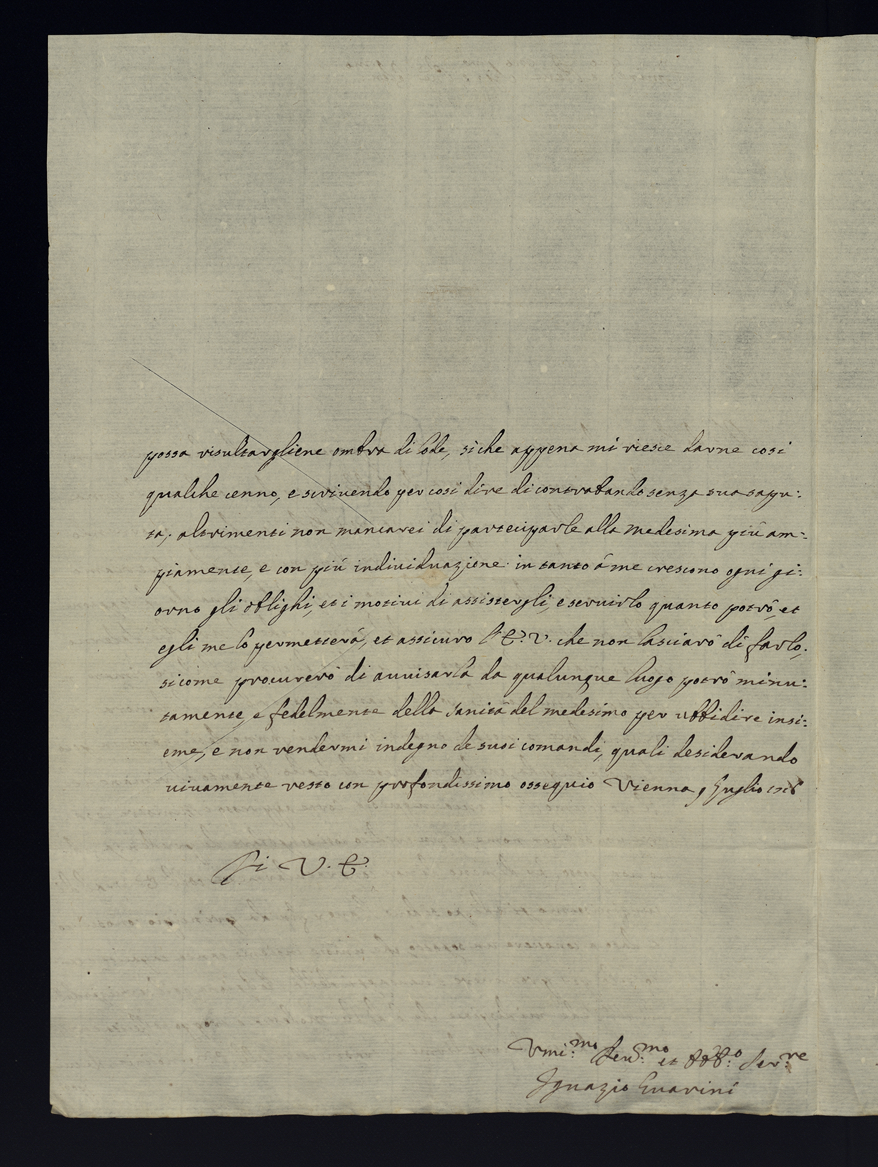 possa risultargliene ombra di lode, siche appena mi riesce darne così
qualche cenno, e scrivendo per così dire di contrabando senza sua sapu:
ta; altrimenti non mancarei di parteciparle alla medesima più am:
piamente, e con più individuazione: in tanto à me crescono ogni gi:
orno gli oblighi, et i motivi di assistergli, e servirlo quanto potrò, et
egli me lo permetterà, et assicuro l'E. V. che non lasciarò di farlo,
sicome procurerò di avvisarla da qualunque luogo potrò minu:
tamente, e fedelmente della sanità del medesimo per ubbidire insi:
eme, e non rendermi indegno de suoi comandi, quali desiderando
vivamente resto con profondissimo ossequio Vienna 9 Luglio
Di V. E.
Umi:mo Deu:mo et Obb:o Ser:re
Ignazio Guarini